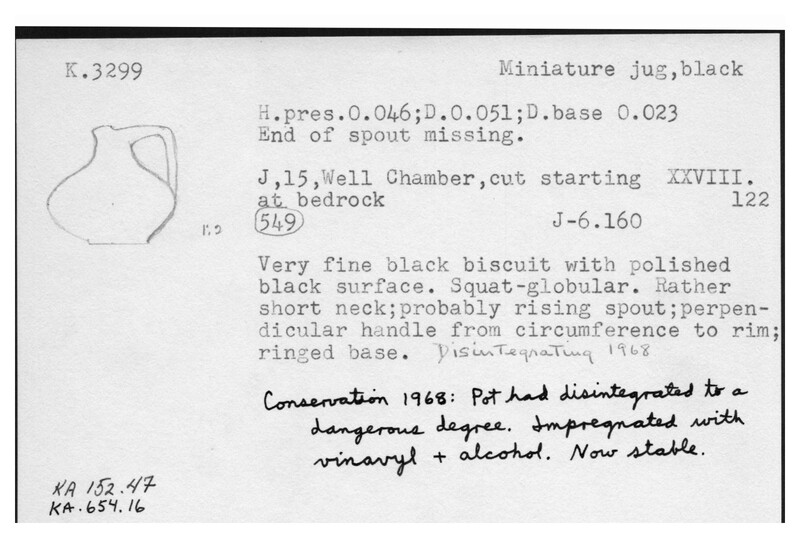 K.3299
Miniature jug,black
H.pres.0.046;D.0.051;D.base 0.023
End of spout missing.
J,15,Well Chamber,cut starting XXVIII.
at bedrock 122
549 J-6.160
Very fine black biscuit with polished
black surface. Squat-globular. Rather
short neck;probably rising spout;perpen-
dicular handle from circumference to rim;
ringed base. Disintegrating 1968
Conservation 1968: Pot had disintegrated to a
dangerous degree. Impregnated with
vinavyl + alcohol. Now stable.
KA 152.47
KA.654.16